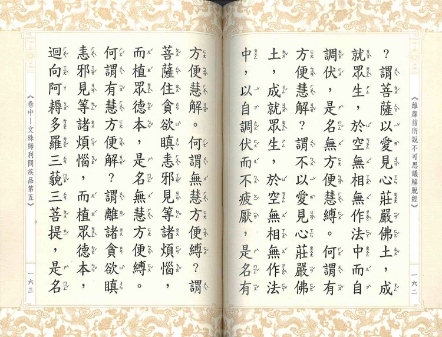 ？謂菩薩以愛見心莊嚴佛土，成
就眾生，於空無相無作法中而自
調伏，是名無方便慧縛。何謂有
方便慧解？謂不以愛見心莊嚴佛
土，成就眾生，於空無相無作法
中，以自調伏而不疲厭，是名有
《維摩詰所說不可思議解脫經》
一六二
方便慧解。何謂無慧方便縛？謂
菩薩住貪欲瞋恚邪見等諸煩惱，
而植眾德本，是名無慧方便縛。
何謂有慧方便解？謂離諸貪欲瞋
恚邪見等諸煩惱，而植眾德本，
迴向阿耨多羅三藐三菩提，是名
《卷中－文殊師利問疾品第五》
一六三